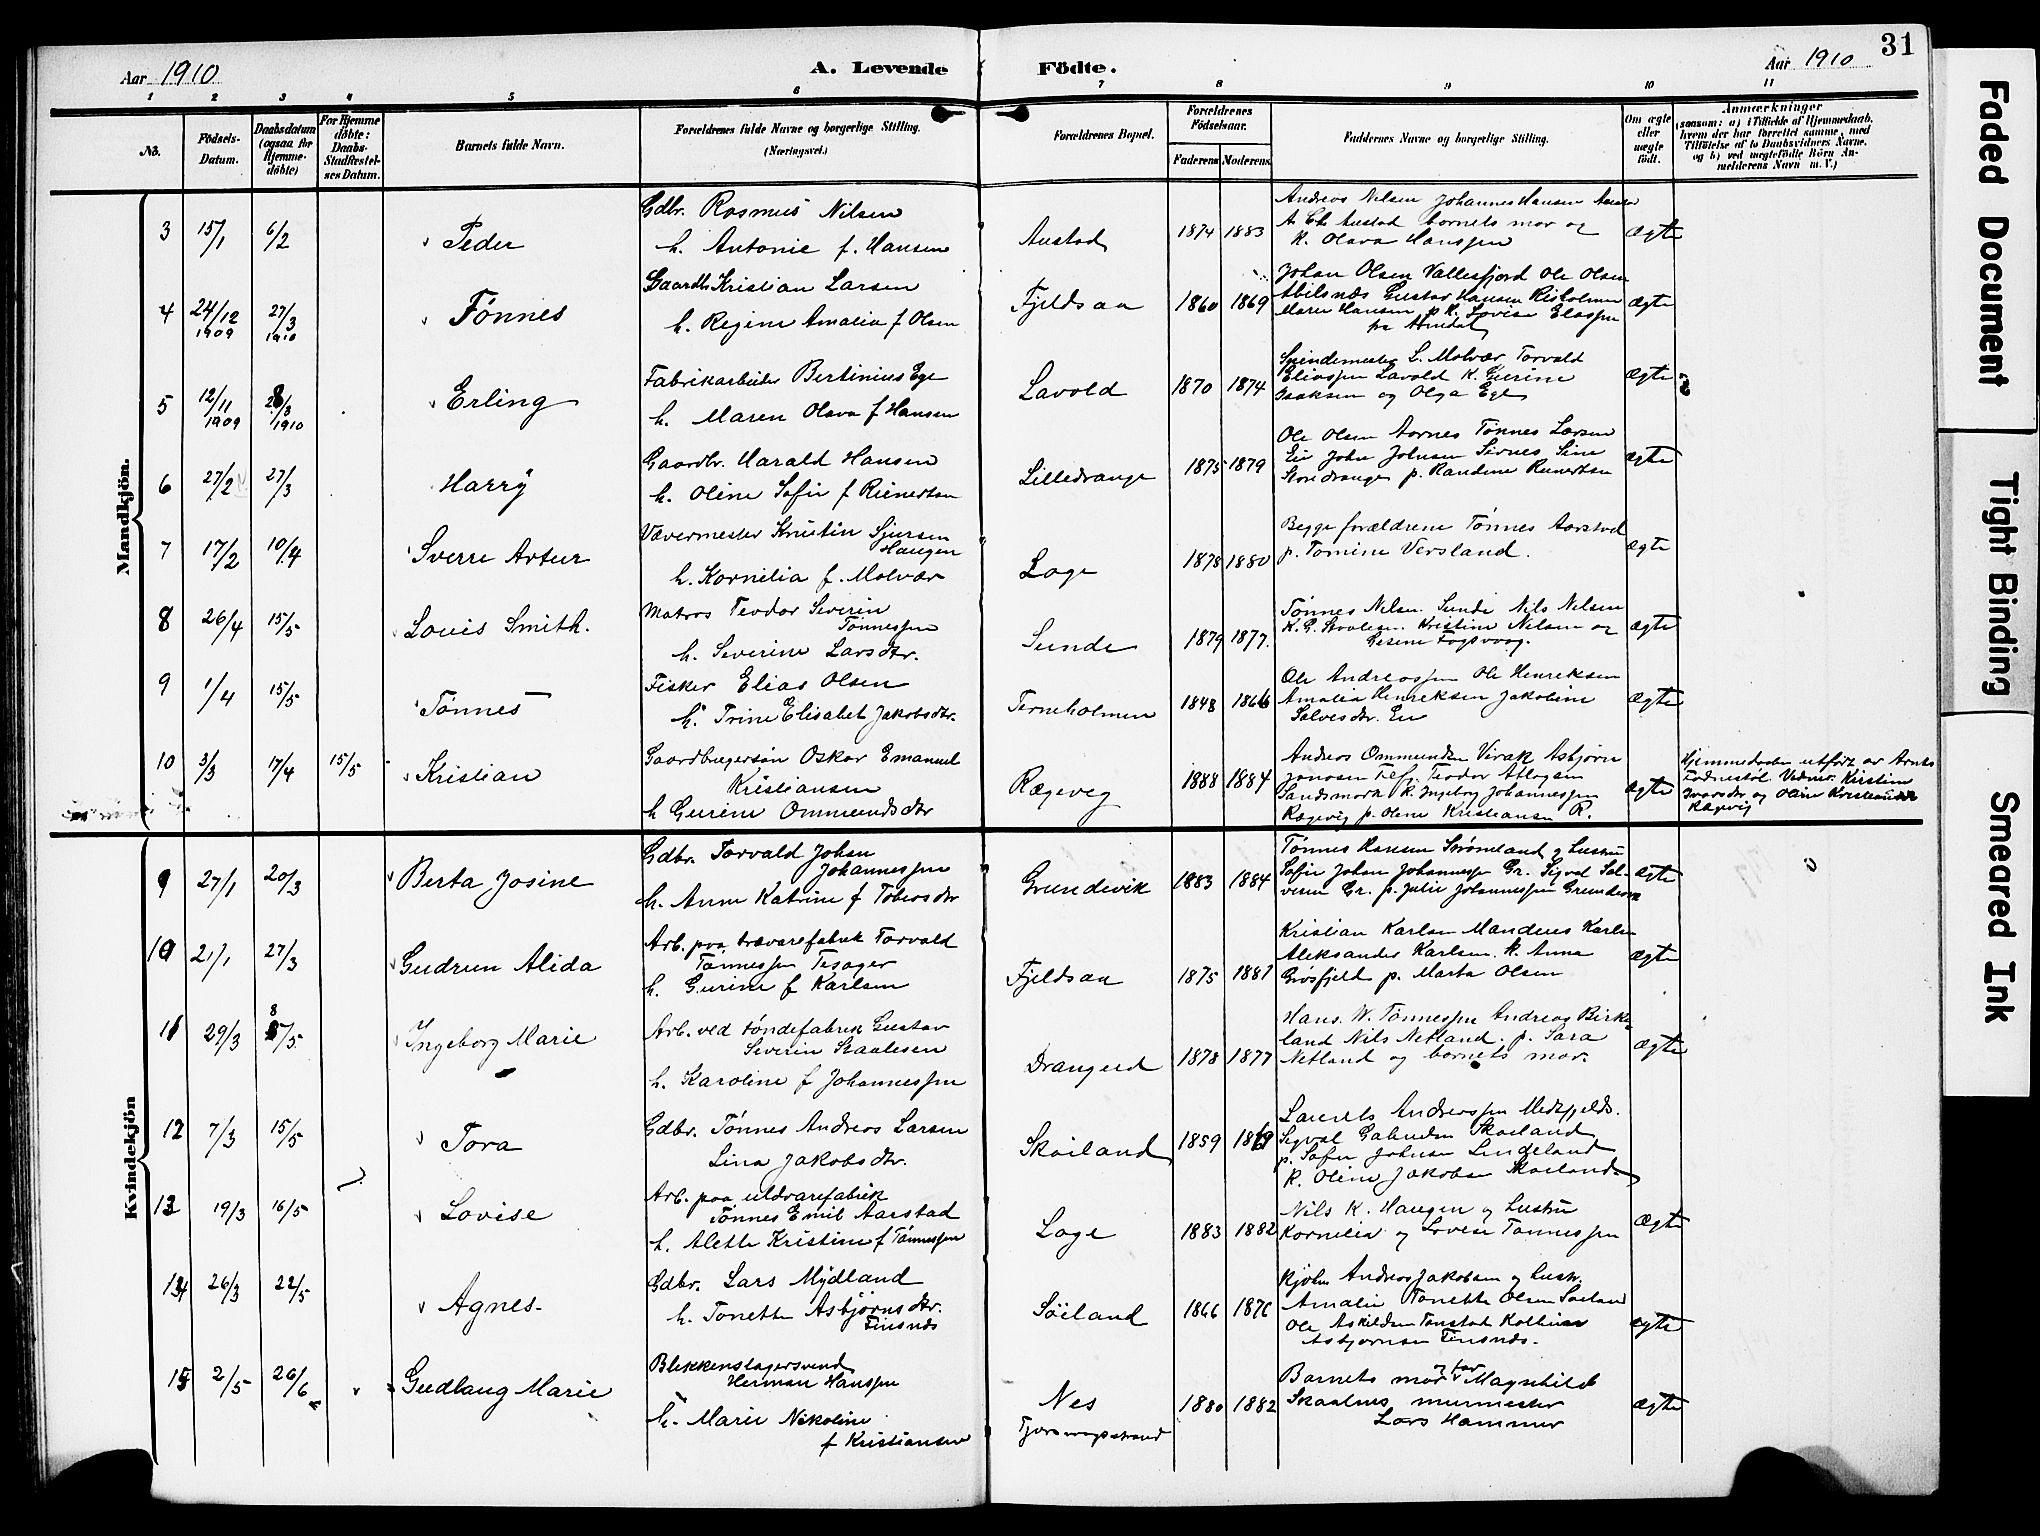 Aar 1910
A. Levende
Födte.
Aar 1910
31
1 2 3 4 5 6 7 8 9 10 11
No.
Födsels-
Datum.
Daabsdatum
(ogsaa for
Hjemme-
döbte)
For Hjemme
döbte:
Daabs-
Stadfæstel-
ses Datum.
Barnets fulde Navn.
Forældrenes fulde Navne og borgerlige Stilling.
(Næringsvei.)
Forældrenes Bopæl.
Forældrenes
Födselsaar.
Faderens Moderens
Faddernes Navne og borgerlige Stilling.
Om ægte
eller
uægte
födt.
Anmærkninger
(saasom: a) i Tilfælde af Hjemmedaab,
hvem der har forrettet samme, med
Tilföielse af to Daabsvidners Navne,
og b) ved uægtefödte Börn An-
melderens Navn m. V.)
Mandkjön.
3 15/1 6/2 Peder
Gdbr. Rasmus Nilsen
h. Antonie f. Hansen
Austad 1874 1883
Andreas Nilsen Johannes Hansen
A. Ch. Austad barnets mor og
k. Olava Hanssen
ægte
4 24/12 1909 27/3 1910 Tønnes
Gaardb. Kristian Larsen
h. Regine Amalia f Olsen
Fjeldsaa 1860 1869
Johan Olsen Vallesfjord Ole Olsen
Abilsnæs Gustav Hansen Risholmen
Maren Hansen p. k. Lovise Eliassen
ægte
5 12/11 1909 28/3 1910 Erling
Fabrikarbeider Bertinius Ege
h. Maren Olava f Hansen
Lavold 1870 1874
Spindemester L. Molvær Torvald
Eliassen Lavold k. Gurine
Isaksen og Olga Ege
ægte
6 27/2 27/3 Harry
Gaardbr. Harald Hansen
h. Oline Sofie f Rienertsen
Lilledrange 1875 1879
Ole Olsen Aarnes Tønnes Larsen
Eie John Johnsen Sirnes Sine
Storedrange p. Randine Reinertsen
ægte
7 17/2 10/4 Sverre Artur
Vævermester Kristin Sjursen
Haugen
h. Kornelia f. Molvær
Loge 1878 1880
Begge forældrene Tønnes Aarstad
p. Tomine Versland.
ægte
8 26/4 15/5 Louis Smith.
Matros Teodor Severin
Tønnessen
h. Severine Larsdtr.
Sunde 1879 1877.
Tønnes Nilsen. Sunde Nils Nilsen
K. G. Staalesen. Kristine Nilsen og
Gesine Fogsvaag.
ægte
9 1/4 15/5 Tønnes
Fisker Elias Olsen
h. Trine Elisabet Jakobsdtr.
Terneholmen 1848 1866
Ole Andreassen Ole Henriksen
Amalia Henriksen Jakobine
Salvesdtr. Eie
ægte
10 3/3 17/4 15/5 Kristian
Gaardbrugersøn Oskar Emanuel
Kristiansen
h Gurine Ommundsdtr
Rægevig 1888 1884
Andreas Ommundsen Virak Asbjørn
Jonasen Teodor Atlogsen
Sandsmark k. Ingeborg Johannessen
Rægevig p. Oline Kristiansen R.
ægte
Hjemmedaaben utført av Arnt
Fodnestøl. Vidner. Kirstine
Ivarsdtr og Oline Kristiansen
Rægevig
Kvindekjön
9 27/1 20/3 Berta Josine
Gdbr. Torvald Johan
Johannessen
h. Anne Katrine f Tobiasdtr
Grundevik 1883 1884
Tønnes Hansen Strømland og hustru
Sofie Johan Johannessen Gr. Sigval Sal-
vesen Gr. p. Julie Johannessen Grundevik
ægte
10 21/1 27/3 Gudrun Alida
Arb. paa trævarefabrik Torvald
Tønnessen Tesager
h. Gurine f Karlsen
Fjeldsaa 1875 1881
Kristian Karlsen Mandius Karlsen
Aleksander Karlsen. k. Anna
Grøsfjeld p. Marta Olsen
ægte
11 29/3 8/5 Ingeborg Marie
Arb. ved tøndefabrik Gustav
Severin Staalesen
h. Karoline f Johannessen
Drangeid 1878 1877
Hans. W. Tønnessen Andreas Birke-
land Nils Netland. p. Sara
Netland og barnets mor.
ægte
12 7/3 15/5 Tora
Gdbr. Tønnes Andreas Larsen
Lina Jakobsdtr.
Skoiland 1859 1869
Laurits Andreassen Medfjelds.
Sigval Gabrielsen Skoiland
p. Sofie Johnsen Lindeland
k. Oline Jakobsen Skoiland
13 19/3 16/5 Lovise
Arb. paa uldvarefabrik
Tønnes Emil Aarstad
h. Alette Kristine f Tønnessen
Loge 1883 1882
Nils K. Haugen og hustru
Kornelia og Lovise Tønnessen
ægte
14 26/3 22/5 Agnes.
Gdbr. Lars Mydland
h. Tonette Asbjørnsdtr.
Finsnæs
Søiland 1866 1876
Kjøbm Andreas Jakobsen og hustr.
Amalie Tonette Olsen Søiland
Ole Askildsen Tonstad
Asbjørnsen Finsnæs.
ægte
15 2/5 26/6 Gudlaug Marie
Blikkenslagersvend
Herman Hanssen
h. Marie Nikoline
f Kristiansen
Nes
1880 1882
Barnets mor og far Magnhild
Skaalnes murmester
Lars Hammer
ægte
Faded Document
Tight Binding
Smeared Ink